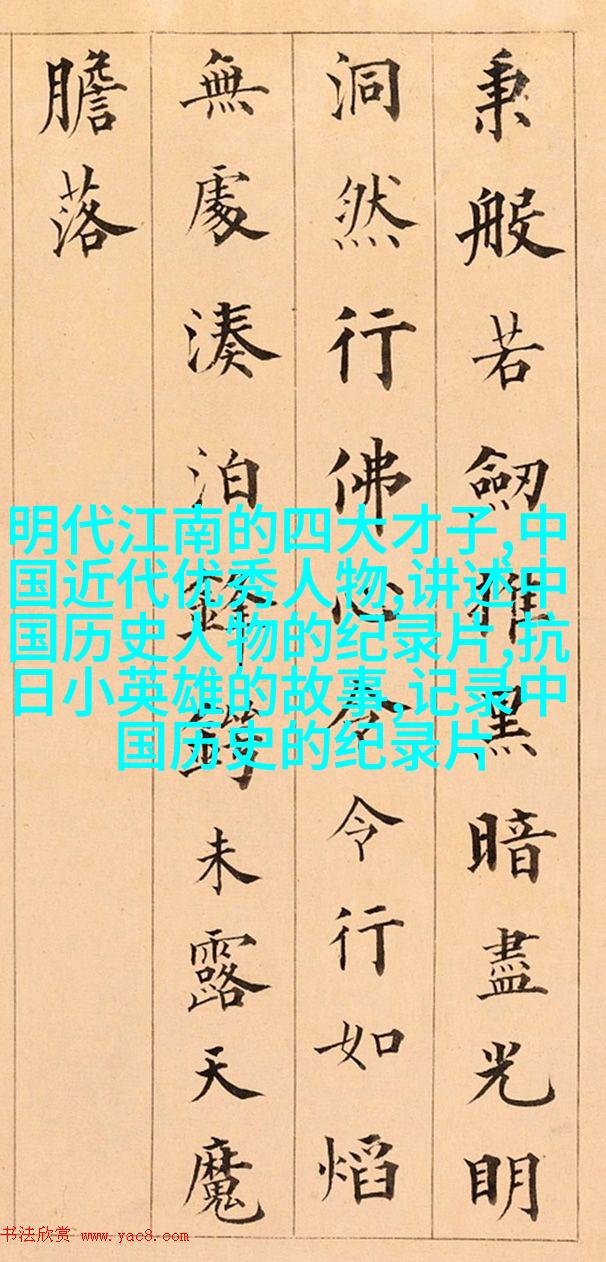 秉般若劒黑暗盡光明
洞然行佛心令令行如焰
無處湊泊鋒未露天魔
膽落
明代江南的四大才子,中
国近代优秀人物,讲述中
国历史人物的纪录片,抗
日小英雄的故事,记录中
国历史的纪录片
书法欣赏 www.yac8.com